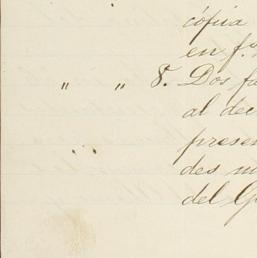 cópia
en f.s
" " 8. Dos fa
al dec
presen
des m
del G